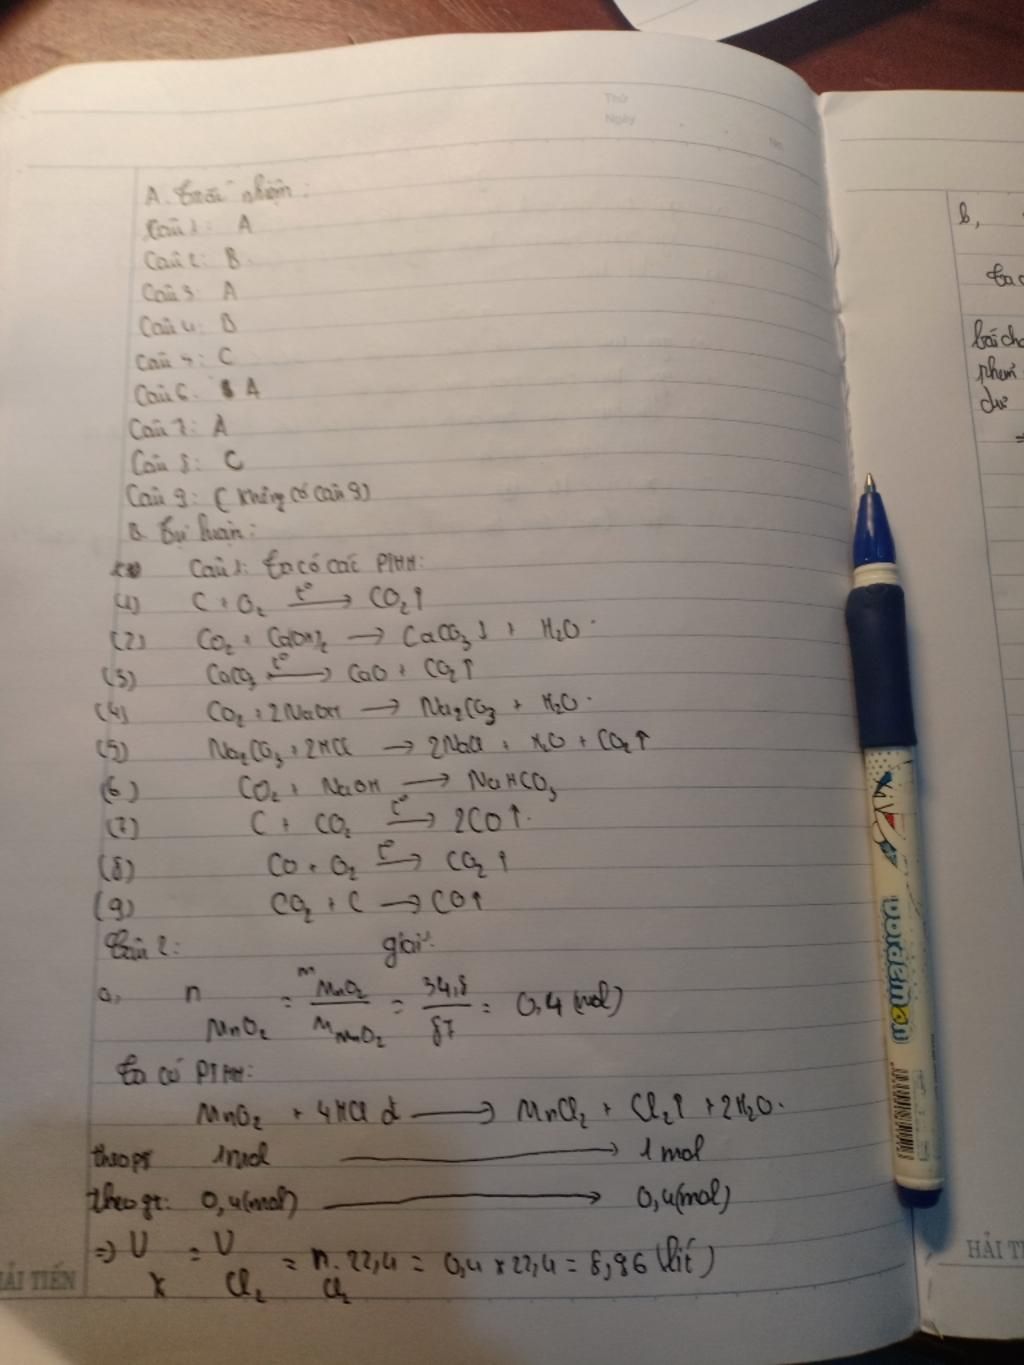 Thứ
Ngày
No.
A. Trắc nhiệm:
Câu 1: A
Câu 2: B
Câu 3: A
Câu 4: B
Câu 5: C
Câu 6: A
Câu 7: A
Câu 8: C
Câu 9: ( không có câu 9)
B. Tự luận:
Câu 1: Ta có các PTHH:
(1) C + O₂ t° → CO₂↑
(2) CO₂ + Ca(OH)₂ → CaCO₃↓ + H₂O.
(3) CaCO₃ t° → CaO + CO₂↑
(4) CO₂ + 2NaOH → Na₂CO₃ + H₂O.
(5) Na₂CO₃ + 2HCl → 2NaCl + H₂O + CO₂↑
(6) CO₂ + NaOH → NaHCO₃
(7) C + CO₂ t° → 2CO↑.
(8) CO + O₂ t° → CO₂↑
(9) CO₂ + C → CO↑
Câu 2: giải:
a, n MnO₂ = m MnO₂ / M MnO₂ = 34,8 / 87 = 0,4 (mol)
Ta có PTHH:
MnO₂ + 4HCl đ → MnCl₂ + Cl₂↑ + 2H₂O.
theo pt 1 mol → 1 mol
theo gt: 0,4(mol) → 0,4(mol)
=> V X = V Cl₂ = n Cl₂ . 22,4 = 0,4 x 22,4 = 8,96 (lít)
HẢI TIẾN
b,
Ta c
bài cho
phản
dư
=
HẢI T
DORAEMON